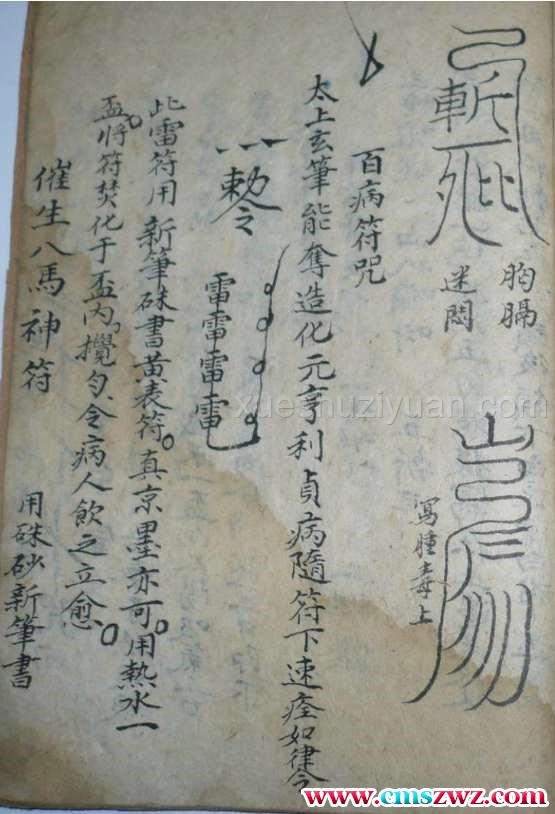 斬
胸膈
迷悶
寫腫毒上
百病符咒
太上玄筆能奪造化元亨利貞病隨符下速痊如律令
勅令
雷雷雷電
此雷符用新筆硃書黃表符。真京墨亦可。用熱水一
盃。將符焚化于盃內攪勻、令病人飲之立愈。
催生八馬神符
用硃砂新筆書
xueshuziyuan.com
www.cmszwz.com